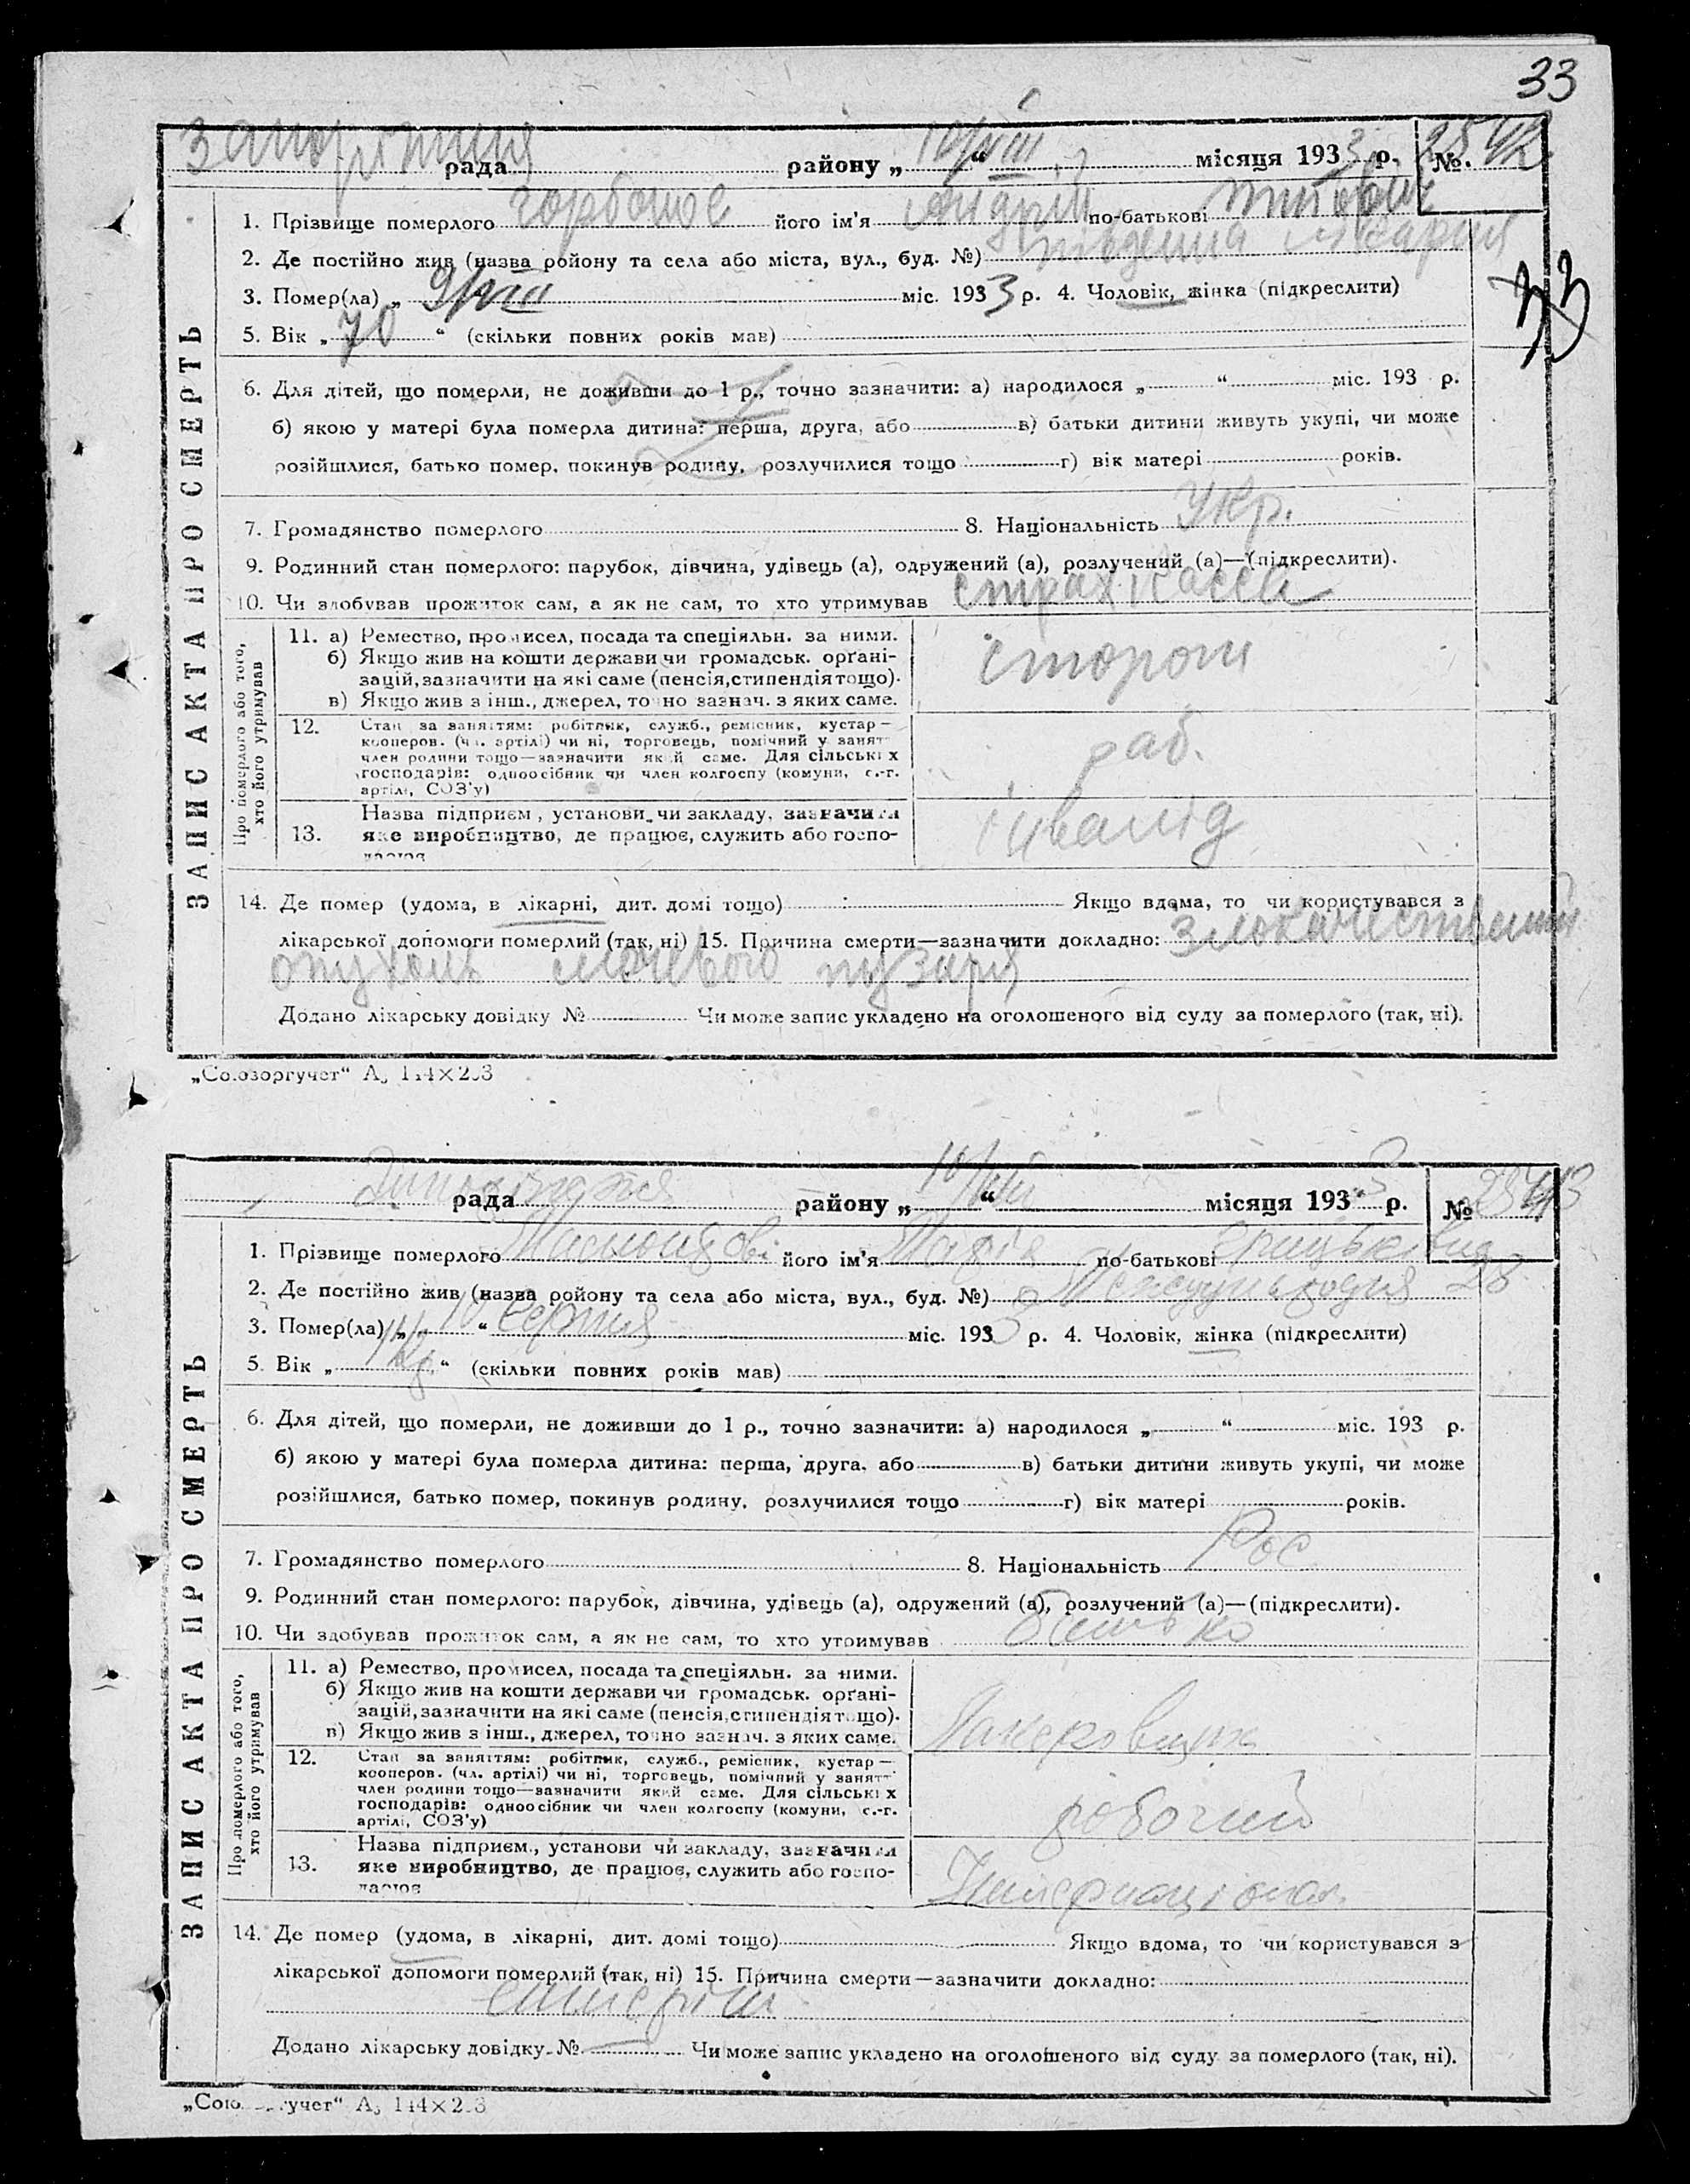 33
Запоріжжя рада району „ 10/VIII “ місяця 1933 р. № 2542
1. Прізвище померлого його ім'я Андрій по-батькові
2. Де постійно жив (назва ройону та села або міста, вул., буд. №) південна лікарня
3. Помер(ла) „ 9/VIII міс. 1933 р. 4. Чоловік, жінка (підкреслити)
33
5. Вік „ 70 “ (скільки повних років мав)
6. Для дітей, що померли, не доживши до 1 р., точно зазначити: а) народилося „ “ міс. 193 р.
б) якою у матері була померла дитина: перша, друга, або в) батьки дитини живуть укупі, чи може
розійшлися, батько помер, покинув родину, розлучилися тощо г) вік матері років.
7. Громадянство померлого 8. Національність Укр.
9. Родинний стан померлого: парубок, дівчина, удівець (а), одружений (а), розлучений (а)—(підкреслити).
10. Чи здобував прожиток сам, а як не сам, то хто утримував страхкасса
ЗАПИС АКТА ПРО СМЕРТЬ
Про померлого або того,
хто його утримував
11. а) Ремество, промисел, посада та спеціяльн. за ними.
б) Якщо жив на кошти держави чи громадськ. орґані-
зацій, зазначити на які саме (пенсія, стипендія тощо).
в) Якщо жив з інш., джерел, точно зазнач. з яких саме.
сторож
12. Стан за заняттям: робітник, служб., ремісник, кустар—
кооперов. (чл. артілі) чи ні, торговець, помічний у занят
член родини тощо—зазначити який саме. Для сільських
господарів: одноосібник чи член колгоспу (комуни, с.-г.
артілі, СОЗ'у)
раб.
13. Назва підприєм., установи чи закладу, зазначити
яке виробництво, де працює, служить або госпо-
дарює
інвалід
14. Де помер (удома, в лікарні, дит. домі тощо) Якщо вдома, то чи користувався з
лікарської допомоги померлий (так, ні) 15. Причина смерти—зазначити докладно: злокачественний
опухоль мочевого пузиря
Додано лікарську довідку № Чи може запис укладено на оголошеного від суду за померлого (так, ні).
„Союзоргучет“ А5 144×203
рада району „ 10/VIII “ місяця 1933 р. № 2543
1. Прізвище померлого його ім'я по-батькові
2. Де постійно жив (назва ройону та села або міста, вул., буд. №) 28
3. Помер(ла) „ 10 “ серпня міс. 1933 р. 4. Чоловік, жінка (підкреслити)
5. Вік „ “ (скільки повних років мав)
6. Для дітей, що померли, не доживши до 1 р., точно зазначити: а) народилося „ “ міс. 193 р.
б) якою у матері була померла дитина: перша, друга, або в) батьки дитини живуть укупі, чи може
розійшлися, батько помер, покинув родину, розлучилися тощо г) вік матері років.
7. Громадянство померлого 8. Національність Рос
9. Родинний стан померлого: парубок, дівчина, удівець (а), одружений (а), розлучений (а)—(підкреслити).
10. Чи здобував прожиток сам, а як не сам, то хто утримував батько
ЗАПИС АКТА ПРО СМЕРТЬ
Про померлого або того,
хто його утримував
11. а) Ремество, промисел, посада та спеціяльн. за ними.
б) Якщо жив на кошти держави чи громадськ. орґані-
зацій, зазначити на які саме (пенсія, стипендія тощо).
в) Якщо жив з інш., джерел, точно зазнач. з яких саме.
12. Стан за заняттям: робітник, служб., ремісник, кустар—
кооперов. (чл. артілі) чи ні, торговець, помічний у занят
член родини тощо—зазначити який саме. Для сільських
господарів: одноосібник чи член колгоспу (комуни, с.-г.
артілі, СОЗ'у)
робочий
13. Назва підприєм., установи чи закладу, зазначити
яке виробництво, де працює, служить або госпо-
дарює
Інтернаціонал
14. Де помер (удома, в лікарні, дит. домі тощо) Якщо вдома, то чи користувався з
лікарської допомоги померлий (так, ні) 15. Причина смерти—зазначити докладно:
ентеріт
Додано лікарську довідку № Чи може запис укладено на оголошеного від суду за померлого (так, ні).
„Союзоргучет“ А5 144×203